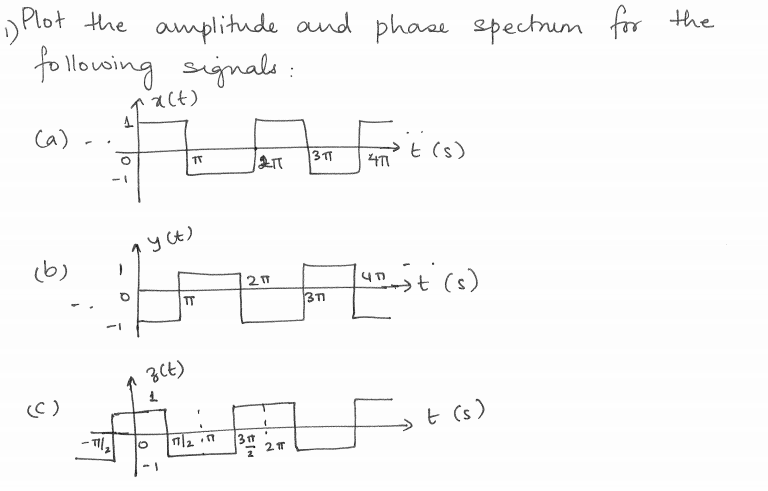 1) Plot the amplitude and phase spectrum for the
following signals:
x(t)
(a) 1
0 π 2π 3π 4π t (s)
-1
y(t)
(b) 1 2π 4π t (s)
0 π 3π
-1
z(t)
(c) 1
t (s)
-π/2 0 π/2 π 3π/2 2π
-1